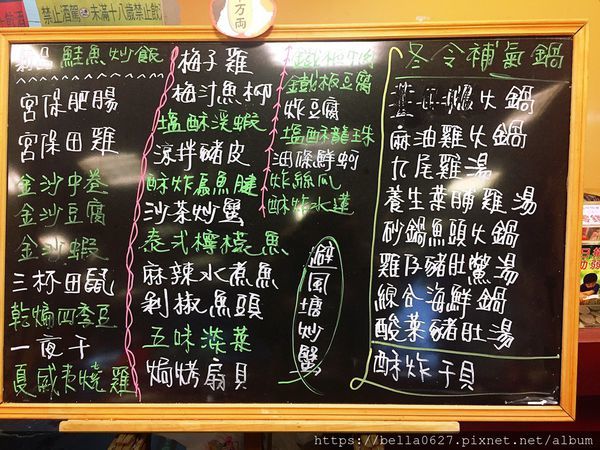 禁止酒駕 未滿十八歲禁止飲
万両
鮭魚炒飯
宮保肥腸
宮保田雞
金沙中卷
金沙豆腐
金沙蝦
三杯田鼠
乾煸四季豆
一夜干
夏威夷燒雞
梅子雞
梅汁魚柳
塩酥溪蝦
涼拌豬皮
酥炸扁魚腱
沙茶炒蟹
泰式檸檬魚
麻辣水煮魚
剁椒魚頭
五味淡菜
焗烤扇貝
鐵板牛肉
鐵板豆腐
炸豆腐
塩酥龍珠
油條鮮蚵
炸絲瓜
酥炸水蓮
避風塘炒蟹
冬令補氣鍋
火鍋
麻油雞火鍋
九尾雞湯
養生菜脯雞湯
砂鍋魚頭火鍋
雞仔豬肚鱉湯
綜合海鮮鍋
酸菜豬肚湯
酥炸干貝
https://bella0627.pixnet.net/album